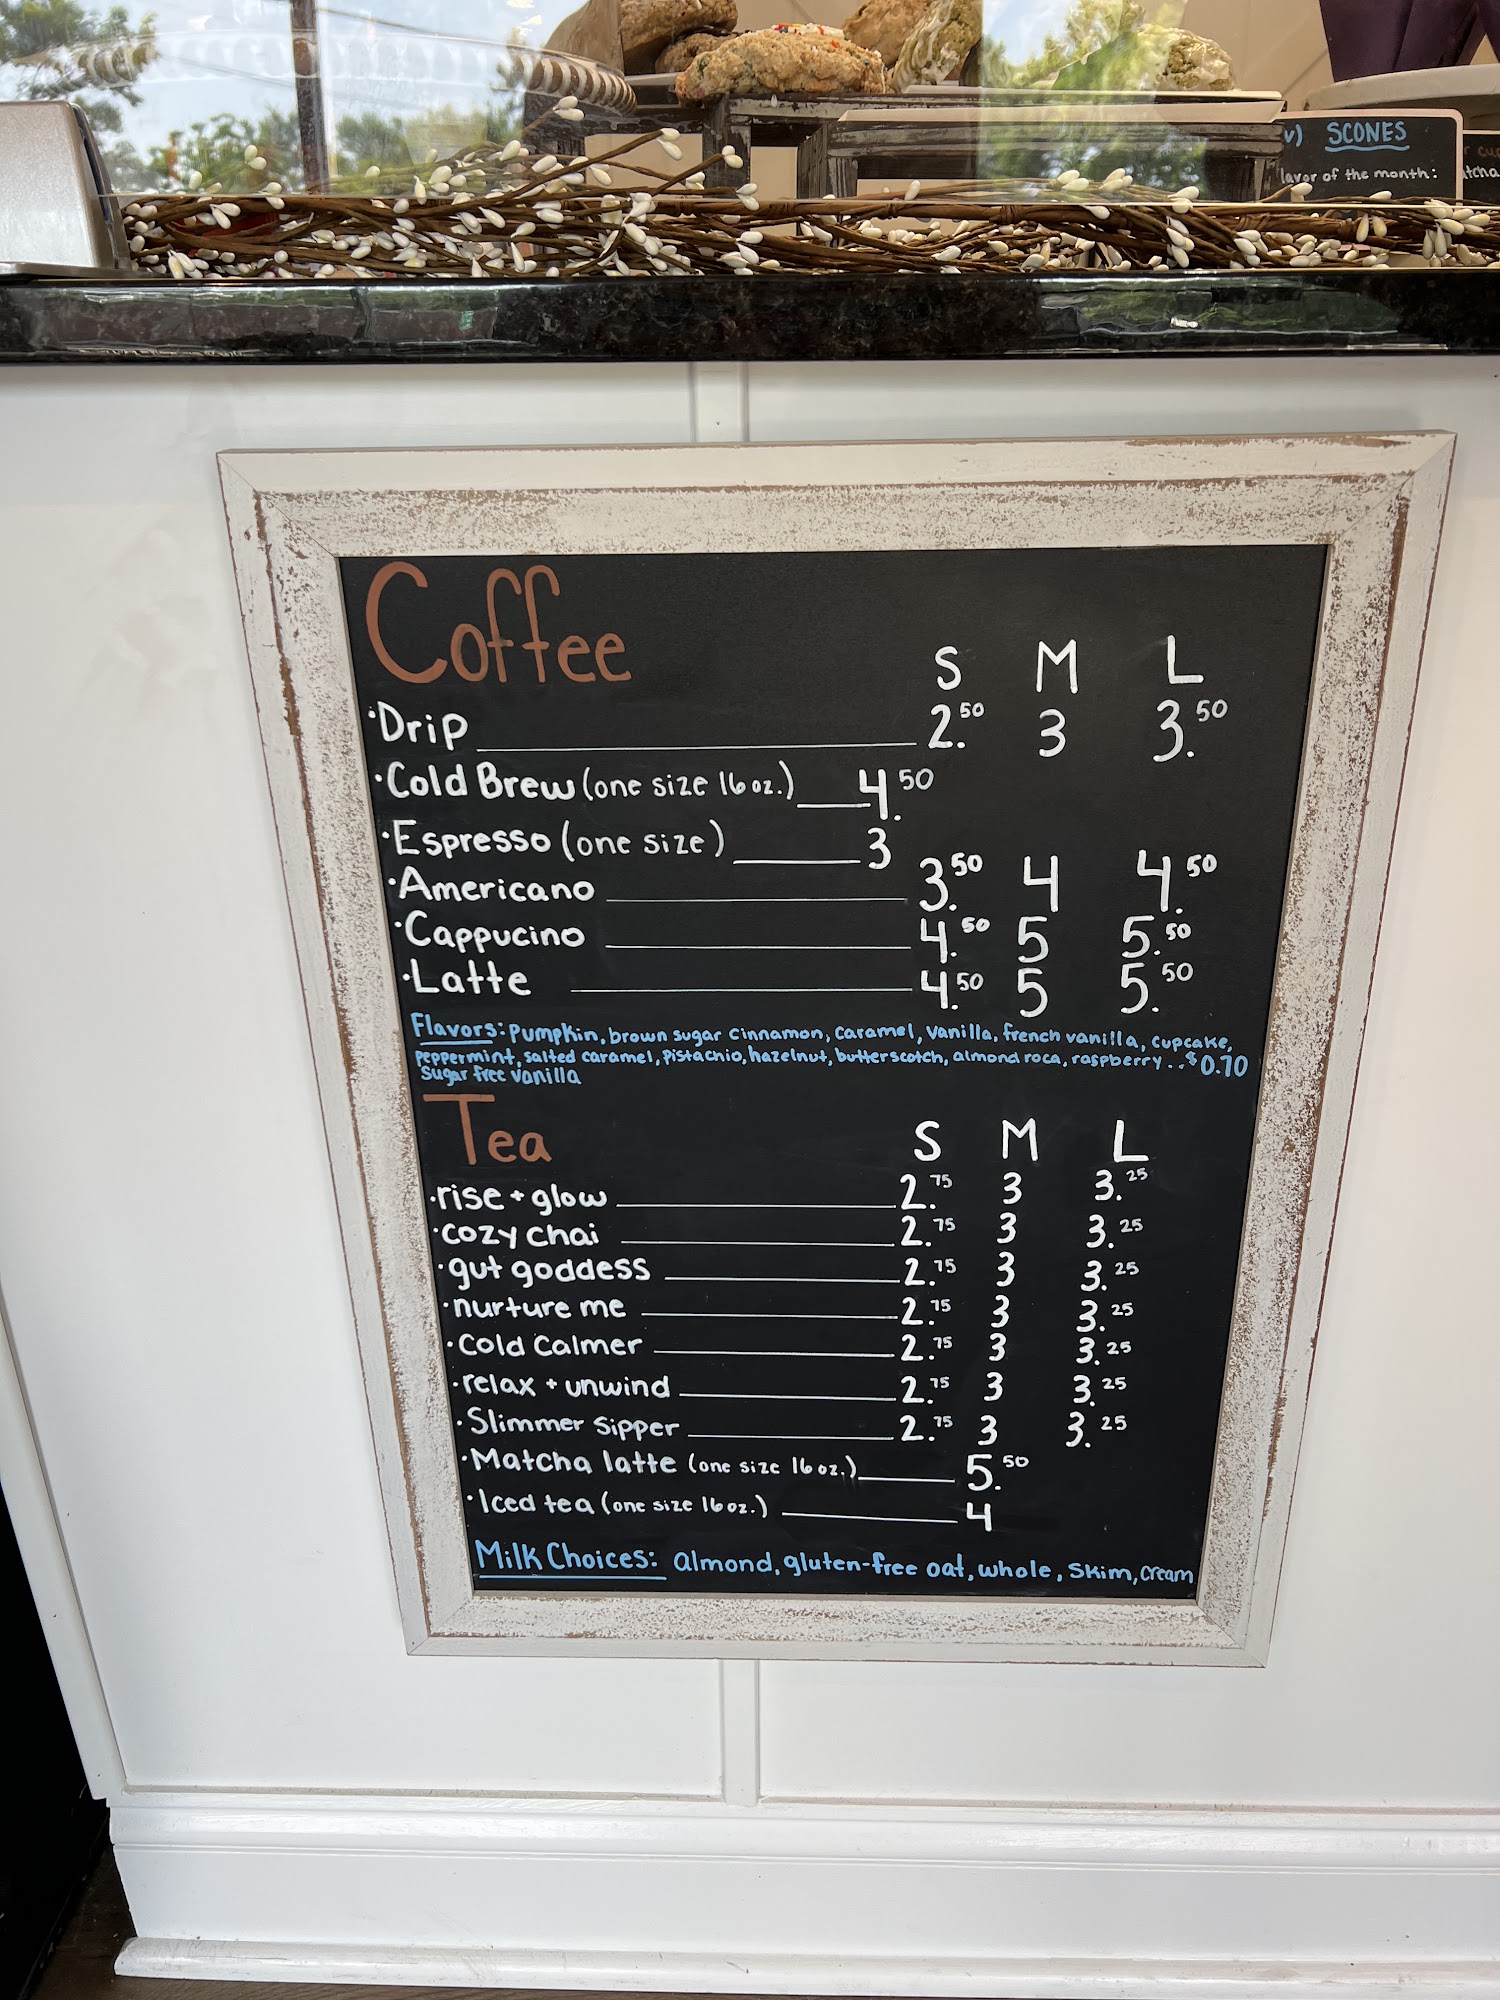 v) SCONES
lavor of the month:
Coffee
S M L
·Drip 2.50 3 3.50
·Cold Brew (one size 16 oz.) 4.50
·Espresso (one size) 3
·Americano 3.50 4 4.50
·Cappucino 4.50 5 5.50
·Latte 4.50 5 5.50
Flavors: Pumpkin, brown sugar cinnamon, caramel, vanilla, french vanilla, cupcake,
peppermint, salted caramel, pistachio, hazelnut, butterscotch, almond roca, raspberry...$0.70
Sugar free vanilla
Tea
S M L
·rise + glow 2.75 3 3.25
·cozy chai 2.75 3 3.25
·gut goddess 2.75 3 3.25
·nurture me 2.75 3 3.25
·Cold Calmer 2.75 3 3.25
·relax + unwind 2.75 3 3.25
·Slimmer Sipper 2.75 3 3.25
·Matcha latte (one size 16 oz.) 5.50
·Iced tea (one size 16 oz.) 4
Milk Choices: almond, gluten-free oat, whole, skim, cream